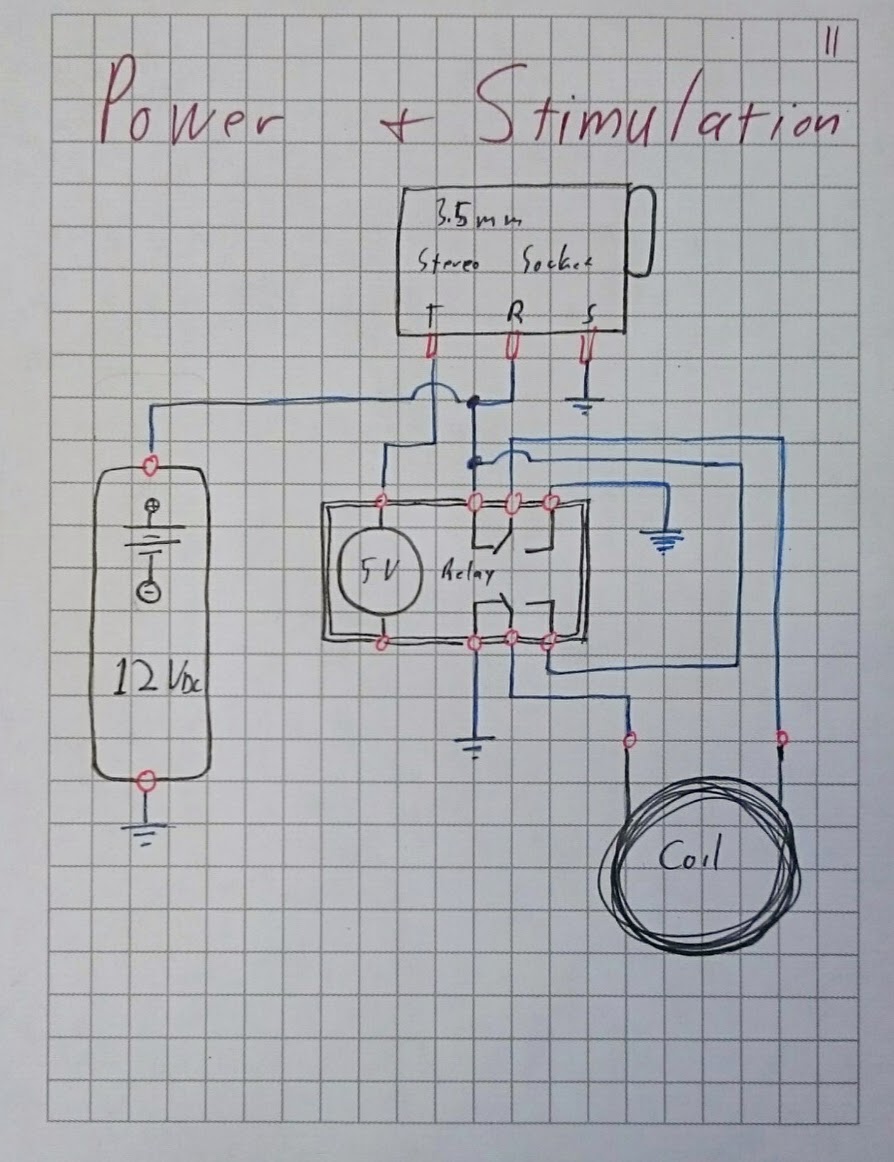 11
Power + Stimulation
3.5mm
Stereo Socket
T R S
5V Relay
12 VDC
Coil